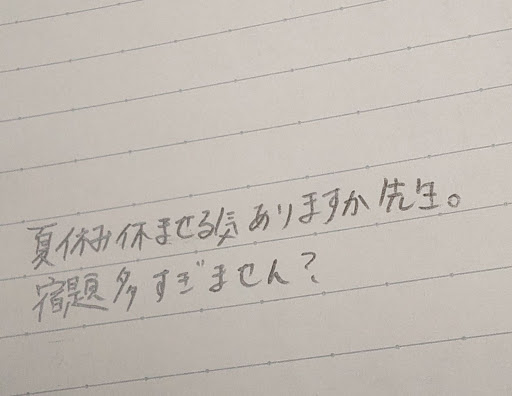 夏休み休ませる気ありますか先生。
宿題多すぎません?